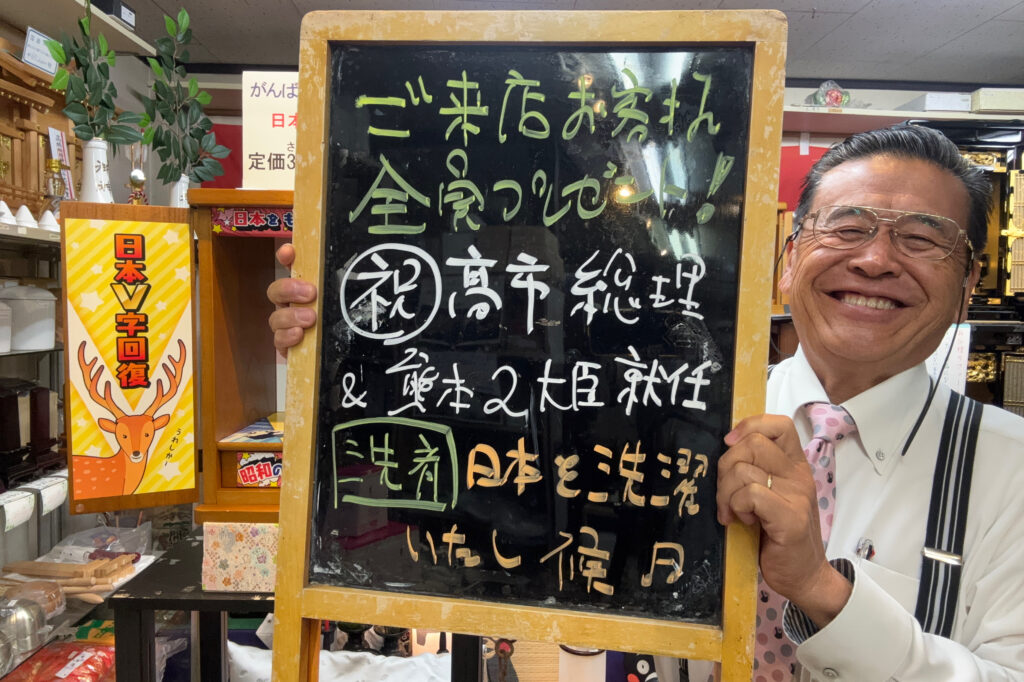 ご来店お客さん
全員プレゼント!
祝 高市総理
& 熊本2大臣就任
洗着 日本を洗濯
いたし候 月
日本V字回復
うれしかー
がんば
日本
定価3
日本をも
昭和の